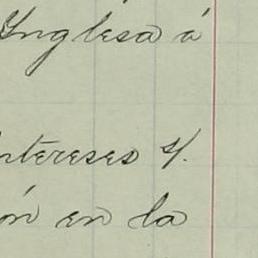 Ynglesa á
ntereses s/.
ón en la